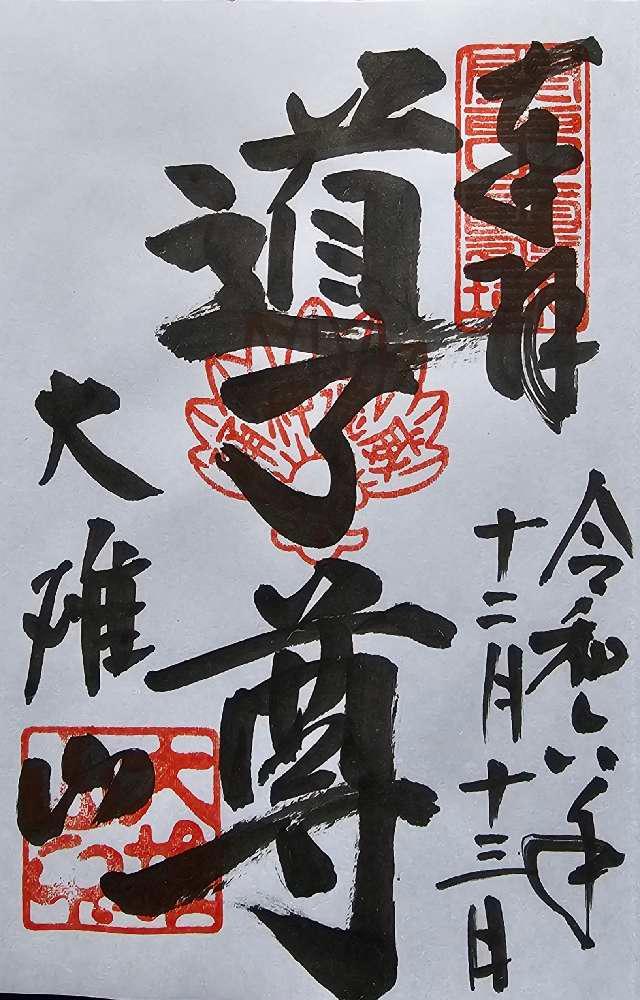 奉拝
令和六年
十二月十三日
道了尊
大雄山